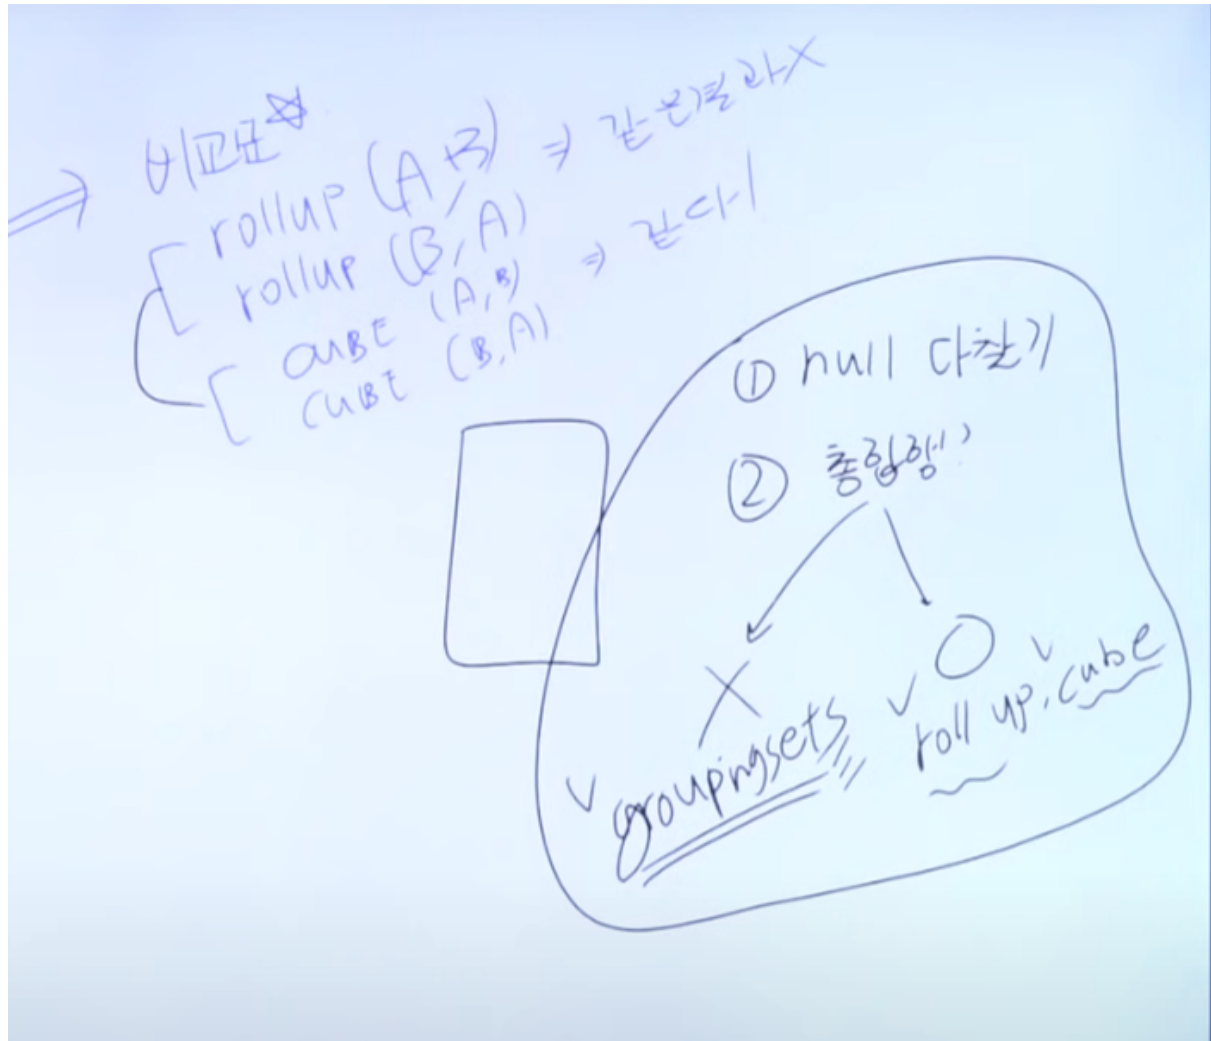 ⇒ 비교군☆
rollup (A,B) ⇒ 같은결과X
rollup (B,A)
CUBE (A,B) ⇒ 같다
CUBE (B,A)
① null 다찾기
② 총합행
X O
✓ groupingsets ✓ roll up, ✓ cube